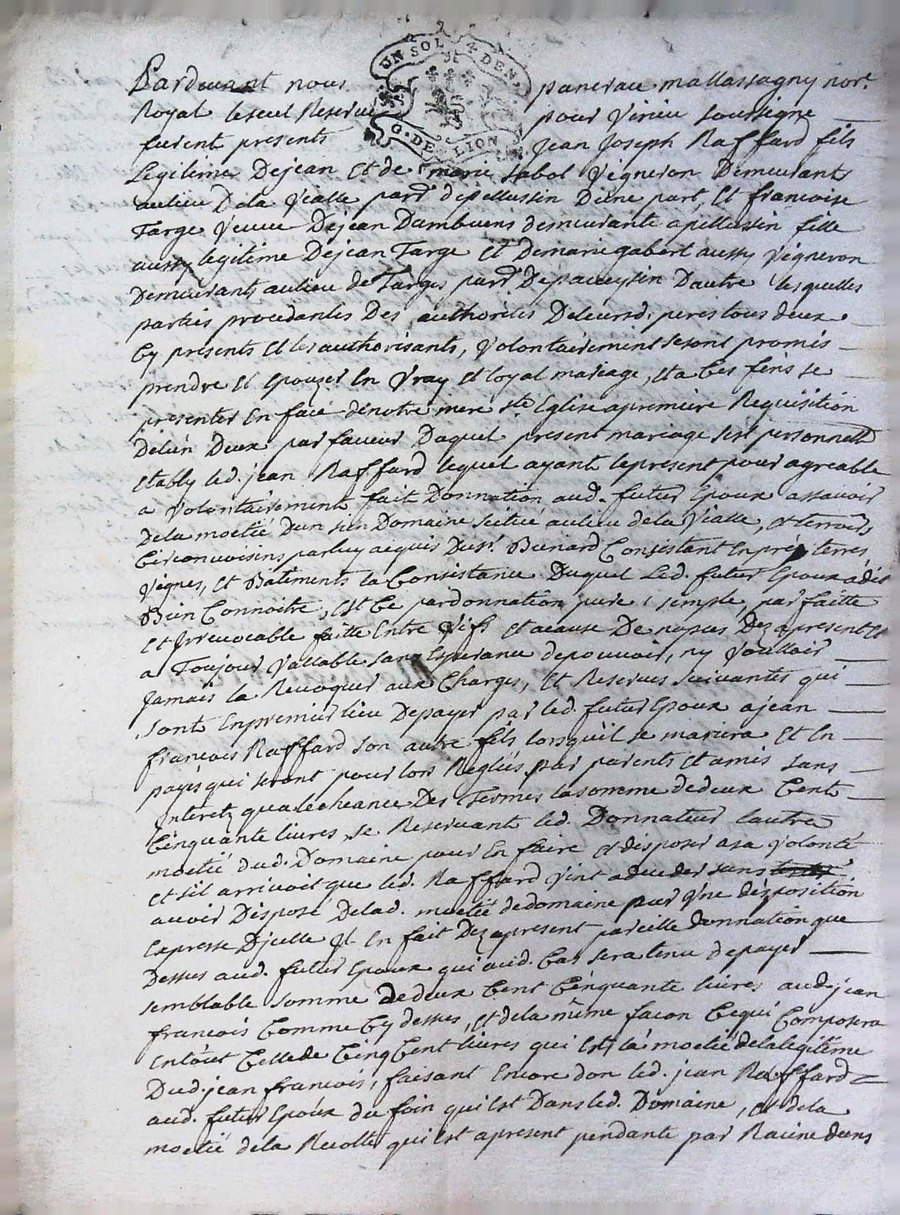 UN SOL 4 DEN.
G. DE LION
Pardevant nous panerau mallassagny nore.
Royal leseul Reservé pour Virieu soussigné
furent presents Jean Joseph Raffard fils
Legitime Dejean Et de marie sabot Vigneron Demeurant
aulieu Dela Vialle parsse depellussin Dune part, Et francoise
Targe Veuve Dejean Dambuens demeurante apellussin fille
aussy legitime Dejean Targe Et Demarie gabert aussy Vigneron
Demeurants aulieu de Targes parsse Depaveysin Dautre lesquelles
parties procedantes Des authorités Deleursd. peres tous deux
Cy presents Et les authorisants, Volontairement sesont promis
prendre Et Epouzer En Vray Et loyal mariage, Et a Ces fins se
presenter En face denotre mere ste Eglise apremiere Requisition
Delun Deux par faveur Duquel present mariage sest personnell
Etably led. jean Raffard lequel ayant lepresent pour agreable
a Volontairement fait Donnation aud. futur Epoux assavoir
Dela moetié Dun sien Domaine scitué aulieu dela Vialle, et terroirs
Circonvoisins parluy acquis Dusr. Benard Consistant En prés, terres
Vignes, et Batiments la Consistance Duquel Led. futur Epoux a dit
Bien Connoitre, Est Ce par donnation pure, simple, parfaitte
Et Irrevocable faitte Entre Vifs Et acause De nopces Dez apresent Et
a Toujour Vallable sans Esperance depouvoir, ny Voulloir
Jamais la Revoquer aux Charges, Et Reserves suivantes qui
sont Enpremier lieu Depayer par led. futur Epoux ajean
francois Raffard son autre fils lorsquil se mariera Et En
payes qui seront pour lors Reglés par parents Et amis sans
Interetz qualecheance Des Termes lasomme dedeux Cent
Cinquante livres, se Reservant led. Donnateur lautre
moetié dud. Domaine pour En faire et disposer asa Volonté
Et sil arrivoit que led. Raffard Vint adeceder sans
avoir Disposé Delad. moetié dedomaine par Une disposition
Expresse Dicelle Il En fait Dez apresent pareille donnation que
Dessus aud. futur Epoux qui aud. Cas sera tenu depayer
semblable somme de deux Cent Cinquante livres aud. jean
francois Comme Cy dessus, Et dela même facon Cequi Composera
Entout Celle de Cinq Cent livres qui Est la moetié delalegitime
Dud. jean francois, faisant Encore don led. jean Raffard
aud. futur Epoux du foin quil Est Dans led. Domaine, Et dela
moetié dela Recolte qui Est apresent pendante par Racine dans